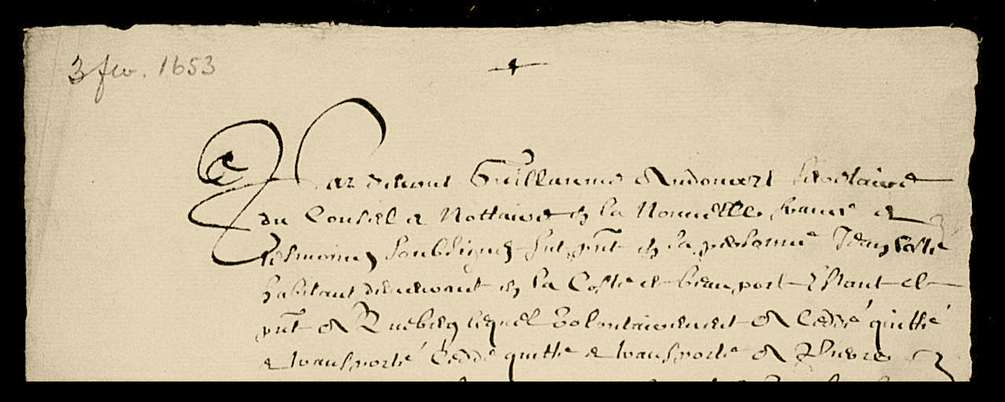 3 fev. 1653
Par devant Guillaume Audouart Secretaire
du Conseil & Nottaire en la Nouvelle france &
tesmoins soubsignez fut pnt en sa personne Jean Costé
habitant demeurant en la Coste de beauport estant de
pnt a Quebecq lequel volontairement a Ceddé quitté
& transporté Cedde quitte & transporte a Pierre